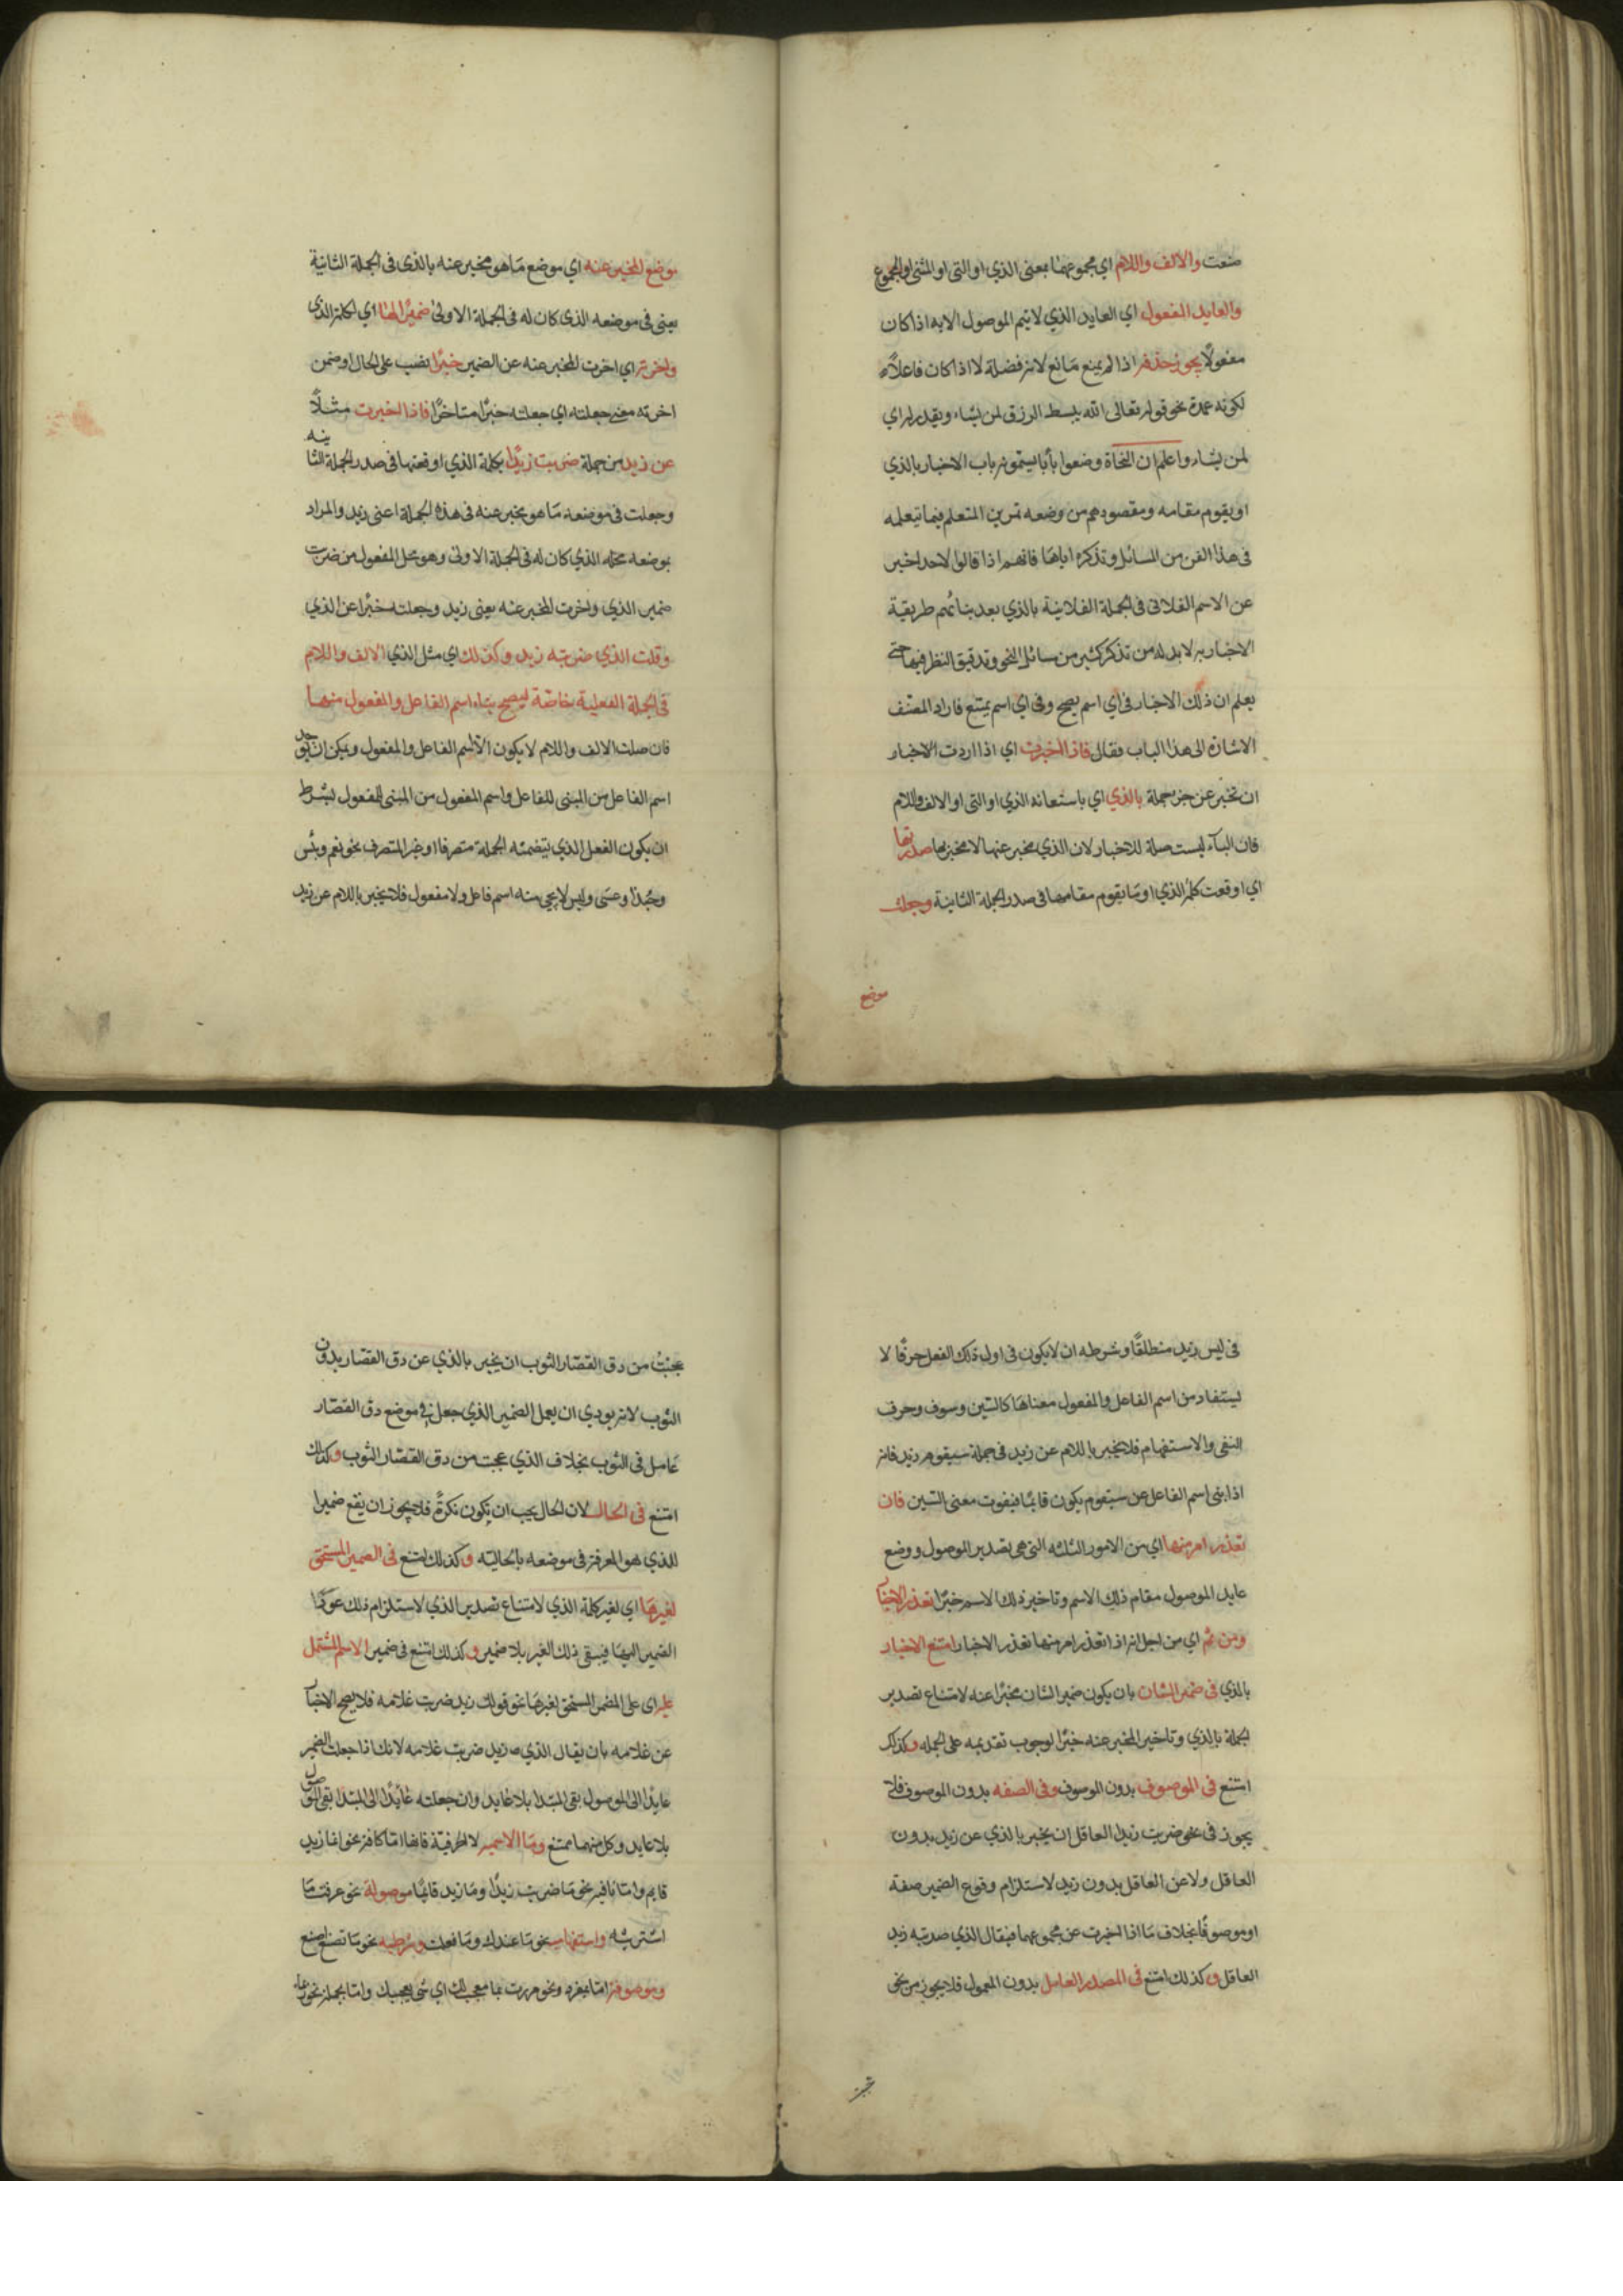 صنعت والالف واللام اي مجموعهما بمعنى الذي او التى او المثنى او المجموع
والعايد المفعول اي العايد الذي لا يتم الموصول الا به اذا كان
مفعولًا يجوز حذفه اذا لم يمنع مانع لانه فضلة لا اذا كان فاعلًا
لكونه عمدة نحو قوله تعالى الله يبسط الرزق لمن يشاء ويقدر له اي
لمن يشاء واعلم ان النحاة وضعوا بابا يسمونه باب الاخبار بالذي
او يقوم مقامه ومقصودهم من وضعه تمرين المتعلم فيما تعلمه
فى هذا الفن من المسائل وتذكره اياها فانهم اذا قالوا لاحد اخبر
عن الاسم الفلانى فى الجملة الفلانية بالذي بعد بيانهم طريقة
الاخبار به لا بد له من تذكر كثير من مسائل النحو وتدقيق النظر فيها حتى
يعلم ان ذلك الاخبار فى اي اسم يصح وفى اي اسم يمتنع فاراد المصنف
الاشارة الى هذا الباب فقال فاذا اخبرت اي اذا اردت الاخبار
ان تخبر عن جزء جملة بالذي اي باستعانة الذي او التى او الالف واللام
فان الباء ليست صلة للاخبار لان الذي مخبر عنها لا مخبر بها صدرتها
اي اوقعت كلمة الذي او ما يقوم مقامها فى صدر الجملة الثانية وجعلت
موضع
موضع المخبر عنه اي موضع ما هو مخبر عنه بالذى فى الجملة الثانية
يعنى فى موضعه الذى كان له فى الجملة الاولى ضميرًا لها اي لكلمة الذى
واخرته اي اخرت المخبر عنه عن الضمير خبرًا نصب على الحال او ضمن
اخرته معنى جعلته اي جعلته خبرًا متاخرًا فاذا اخبرت مثلًا
عن زيد من جملة ضربت زيدًا بكلمة الذي اوقعتها فى صدر الجملة الثانية
وجعلت فى موضعه ما هو مخبر عنه فى هذه الجملة اعنى زيد والمراد
بموضعه محله الذي كان له فى الجملة الاولى وهو محل المفعول من ضربت
ضمير الذي واخرت المخبر عنه يعنى زيد وجعلته خبرًا عن الذي
وقلت الذي ضربته زيد وكذلك اي مثل الذي الالف واللام
فى الجملة الفعلية خاصة ليصح بناء اسم الفاعل والمفعول منها
فان صلة الالف واللام لا يكون الا اسم الفاعل والمفعول ويمكن ان يوخذ
اسم الفاعل من المبنى للفاعل واسم المفعول من المبنى للمفعول بشرط
ان يكون الفعل الذي يتضمنه الجملة متصرفا اذ غير المتصرف نحو نعم وبئس
وحبذا وعسى وليس لا يجي منه اسم فاعل ولا مفعول فلا يخبر باللام عن زيد
فى ليس زيد منطلقًا وشرطه ان لا يكون فى اول ذلك الفعل حرفًا لا
يستفاد من اسم الفاعل والمفعول معناها كالسين وسوف وحرف
النفى والاستفهام فلا يخبر باللام عن زيد فى جملة سيقوم زيد فانه
اذا بنى اسم الفاعل من سيقوم يكون قايمًا فيفوت معنى السين فان
تعذر امر منها اي من الامور الثلثه التى هى تصدير الموصول ووضع
عايد الموصول مقام ذلك الاسم وتاخير ذلك الاسم خبرًا تعذر الاخبار
ومن ثم اي من اجل انه اذا تعذر امر منها تعذر الاخبار امتنع الاخبار
بالذي فى ضمير الشان بان يكون ضمير الشان مخبرًا عنه لامتناع تصدير
الجملة بالذي وتاخير المخبر عنه خبرًا لوجوب تقديمه على الجمله وكذلك
امتنع فى الموصوف بدون الصفة وفى الصفه بدون الموصوف فلا
يجوز فى نحو ضربت زيدا العاقل ان يخبر بالذي عن زيد بدون
العاقل ولا عن العاقل بدون زيد لاستلزام وقوع الضمير صفة
او موصوفًا بخلاف ما اذا اخبرت عن مجموعهما فيقال الذي ضربته زيد
العاقل وكذلك امتنع فى المصدر العامل بدون المعمول فلا يجوز من نحو
عجبت من دق القصار الثوب ان يخبر بالذي عن دق القصار بدون
الثوب لانه يودي ان يعمل الضمير الذي جعل فى موضع دق القصار
عامل فى الثوب بخلاف الذي عجبت من دق القصار الثوب وكذلك
امتنع فى الحال لان الحال يجب ان يكون نكرةً فلا يجوز ان يقع ضميرا
للذي هو المعرفة فى موضعه بالحالية وكذلك امتنع فى الضمير المستحق
لغيرها اي لغير كلمة الذي لامتناع تصدير الذي لاستلزام ذلك عود
الضمير اليها فيبقى ذلك الغير بلا ضمير وكذلك امتنع فى ضمير الاسم المشتمل
عليه اى على الضمير المستحق لغيرها نحو قولك زيد ضربت غلامه فلا يصح الاخبار
عن غلامه بان يقال الذي زيد ضربت غلامه لانك اذا جعلت الضمير
عايدًا الى الموصول بقى المبتدا بلا عايد وان جعلته عايدًا الى المبتدا بقى الموصول
بلا عايد وكل منهما ممتنع وما الاسمية لا الحرفية فانها اما كافة نحو انما زيد
قايم واما نافية نحو ما ضربت زيدًا وما زيد قايمًا موصولة نحو عرفت ما
اشتريته واستفهامية نحو ما عندك وما فعلت وشرطية نحو ما تصنع اصنع
وموصوفة اما بمفرد نحو مررت بما معجب لك اي شى يعجبك واما بجملة نحو